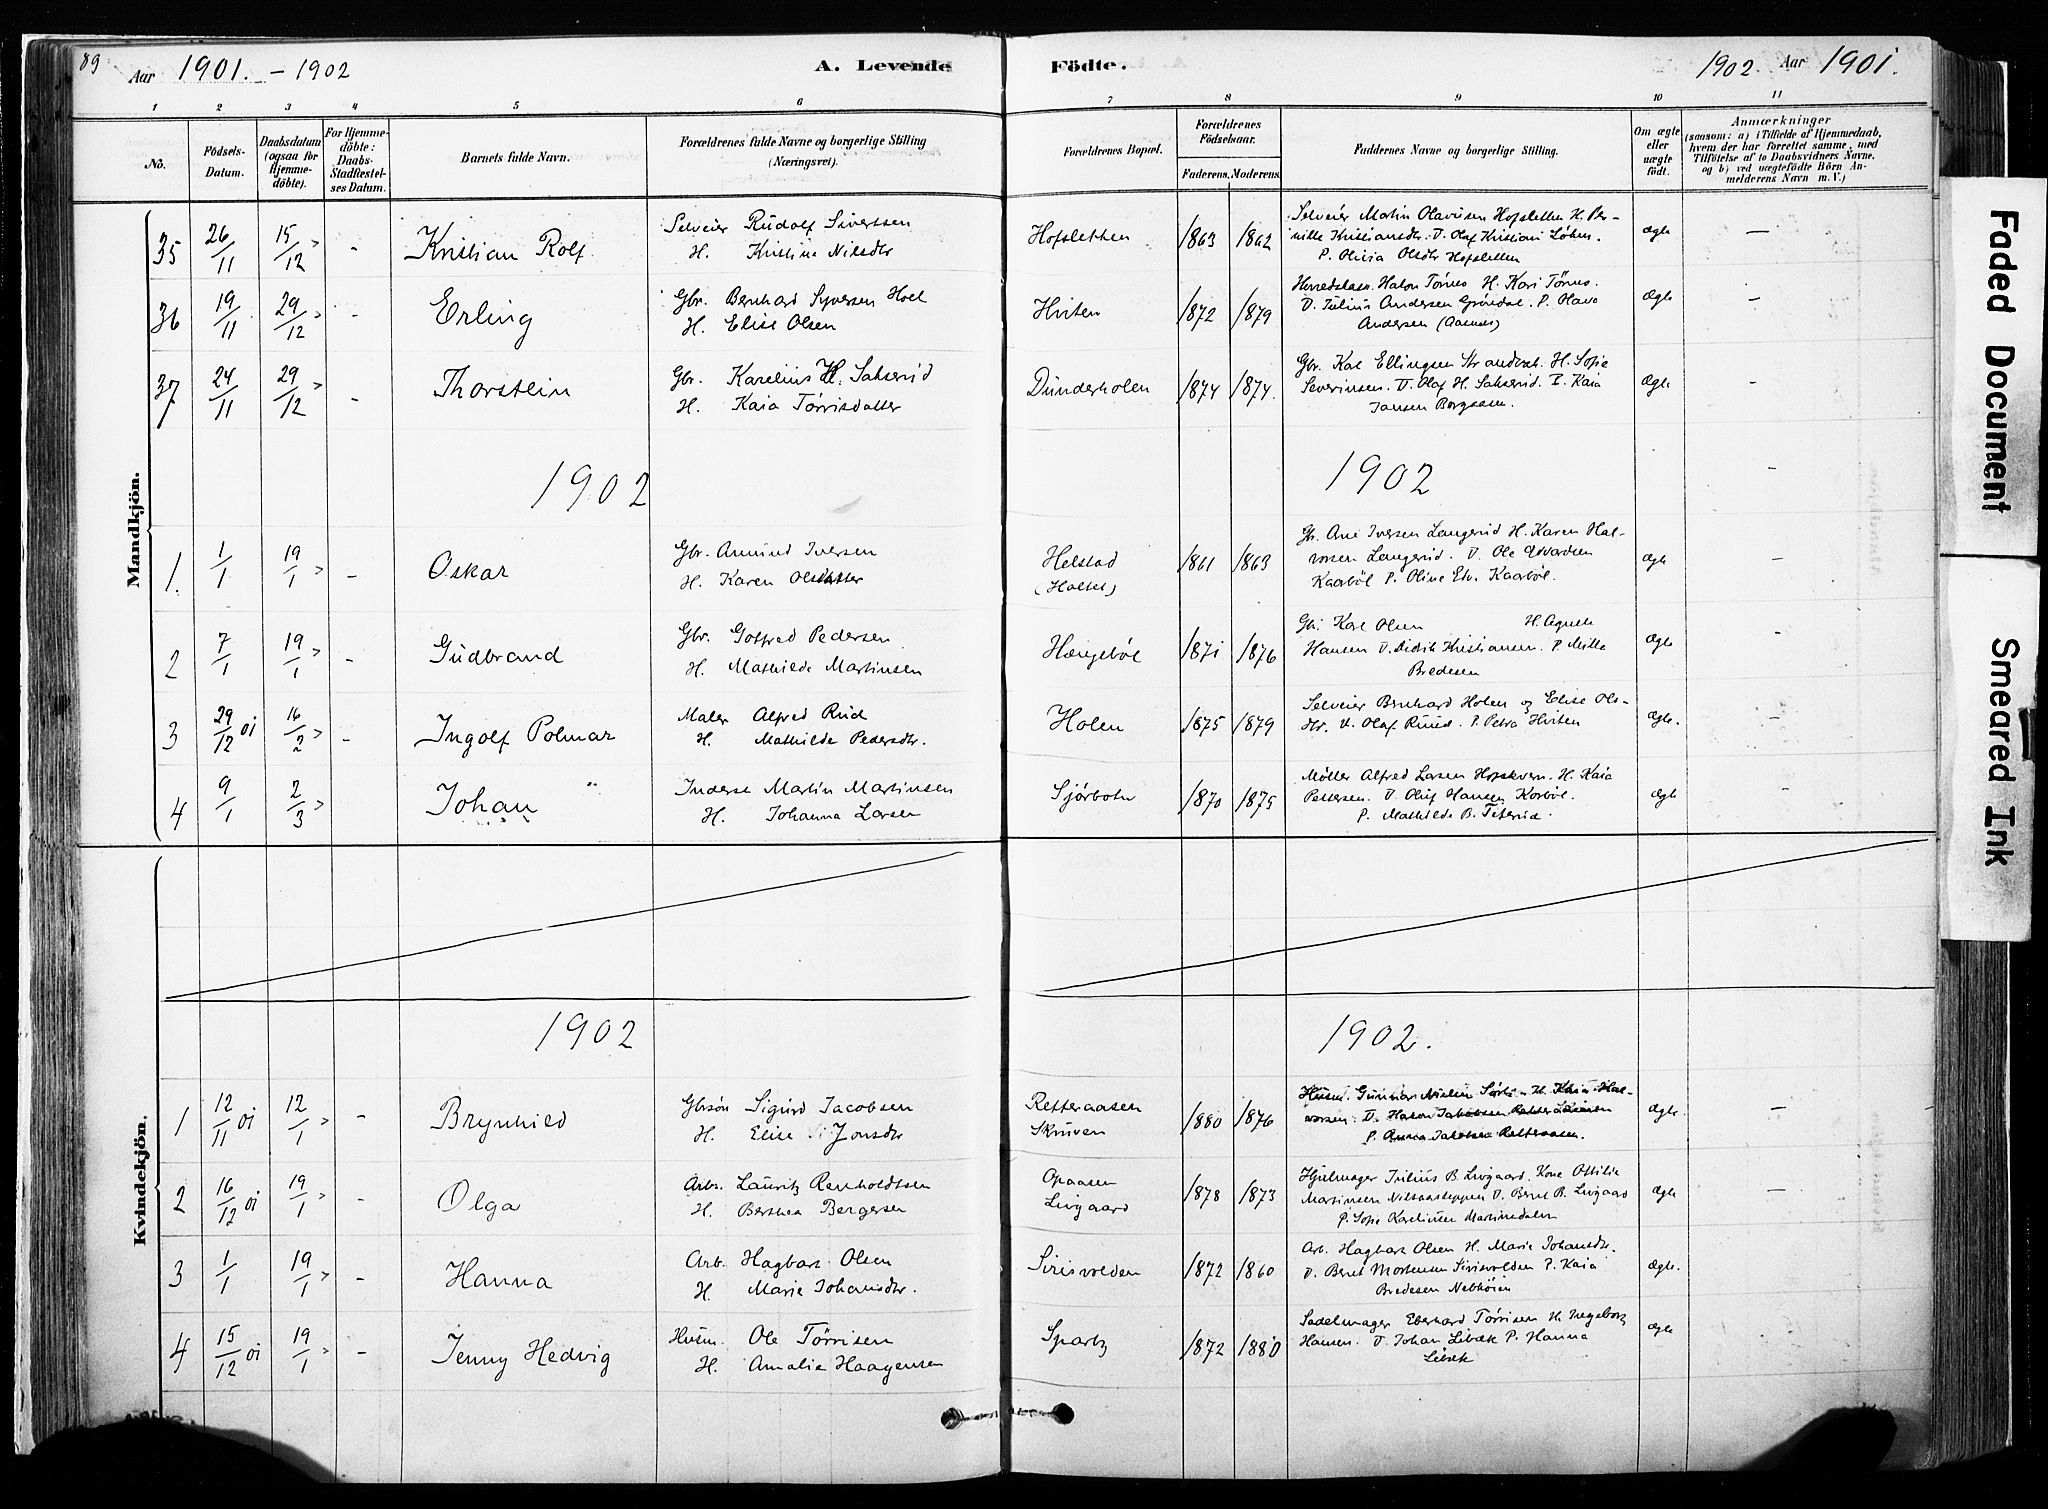 89
Aar 1901. - 1902
A. Levende Födte.
1902 Aar 1901.
1 2 3 4 5 6 7 8 9 10 11
No.
Födsels-
Datum.
Daabsdatum
(ogsaa for
Hjemme-
döbte).
For Hjemme-
döbte:
Daabs-
Stadfæstel-
ses Datum.
Barnets fulde Navn.
Forældrenes fulde Navne og borgerlige Stilling
(Næringsvei).
Forældrenes Bopæl.
Forældrenes
Födselsaar.
Faderens. Moderens.
Faddernes Navne og borgerlige Stilling.
Om ægte
eller
uægte
født.
Anmærkninger
(saasom: a) i Tilfælde af Hjemmedaab,
hvem der har forrettet samme, med
Tilföielse af to Daabsvidners Navne,
og b) ved uægtefödte Börn An-
melderens Navn m. V.)
Mandkjön.
35 26/11 15/12 - Kristian Rolf
Selveier Rudolf Sivertsen
H. Kristine Nilsdtr
Hofsletten 1863 1862
Selveier Martin Olavsen Hofsletten H. Per-
nille Kristiansdtr. U. Olaf Kristian Løken.
P. Olivia Olsdtr Hofsletten
Ægte -
36 19/11 29/12 - Erling
Gbr. Bernhard Syversen Hoel
H. Elise Olsen
Hviten 1872 1879
Hakon Tørnes H. Kari Tørnes.
U. Julius Andersen Grøndal. P. Olava
Andersen (Aasnes)
Ægte -
37 24/11 29/12 - Thorstein
Gbr. Karelius H. Sakserid
H. Kaia Tørrisdatter
Dunderholen 1874 1874.
Gbr. Karl Ellingsen H. Sofie
Severinsen. U. Olaf H. Sakserid. P. Kaia
Jansen Borgaasen.
Ægte -
1902 1902 -
1. 1/1 19/1 - Oskar
Gbr. Amund Iversen
H. Karen Olsdatter
Helstad 1861 1863
(Holtet)
Gb. Ane Iversen Langerud H. Karen Hal-
vorsen Langerud. U. Ole Edvardsen
Kaarbøl P. Oline Edv. Kaarbøl.
Ægte -
2 7/1 19/1 - Gudbrand
Gbr. Gotfred Pedersen
H. Mathilde Martinsen
Hængebøl 1871 1876
Gbr. Karl Olsen H. Agnete
Hansen U. Didrik Kristiansen. P. Mille
Bredesen
Ægte -
3 29/12 01 16/2 - Ingolf Polmar
Maler Alfred Rud
H. Mathilde Pedersdtr.
Holen 1875 1879
Selveier Bernhard Holen og Elise Ols-
dtr. U. Olaf Ruud. P. Petra Hviten
Ægte. -
4 9/1 2/3 Johan "
Inderst Martin Martinsen
H. Johanna Larsen
Sjørbotn 1870 1875
Møller Alfred Larsen Hofskvern. H. Kaia
Pettersen. U. Oluf Hansen Korbøl.
P. Mathilde B. Teterud.
Ægte -
Kvindekjön.
1902 1902.
1 12/11 01 12/1 - Brynhild
Gbrsøn Sigurd Jacobsen
H. Elise Jonsdtr
Retteraasen 1880 1876
Skruven
Husm. Gunnar Nielsen H. Kaia Hal-
vorsen: U. Hakon Jakobsen Retteraasen
P. Anna Jakobsen Retteraasen.
Ægte. - -
2 16/12 01 19/1 - Olga
Arb. Lauritz Renholdtsen
H. Berthea Bergersen
Opaasen 1878 1873
Livgaard
Hjulmager Julius B. Livgaard. Kone Ottilie
Martinsen U. Bernt B. Livgaard
P. Sofie Kareliusen Martinsdalen
Ægte -
3 1/1 19/1 - Hanna
Arb. Hagbart Olsen
H. Marie Johansdtr.
Sirisvolden 1872 1860
Arb. Hagbart Olsen H. Marie Johansdtr.
U. Bernt Mortensen Sirisvolden P. Kaia
Bredesen Nebhøien
Ægte.
4 15/12 01 19/1 - Jenny Hedvig
Husm. Ole Tørrisen
H. Amalie Haagensen
Sparby 1872 1880
Sadelmager Eberhard Tørrisen H. Ingeborg
Hansen. U. Johan Libæk P. Hanna
Libæk
Ægte
Faded Document
Smeared Ink